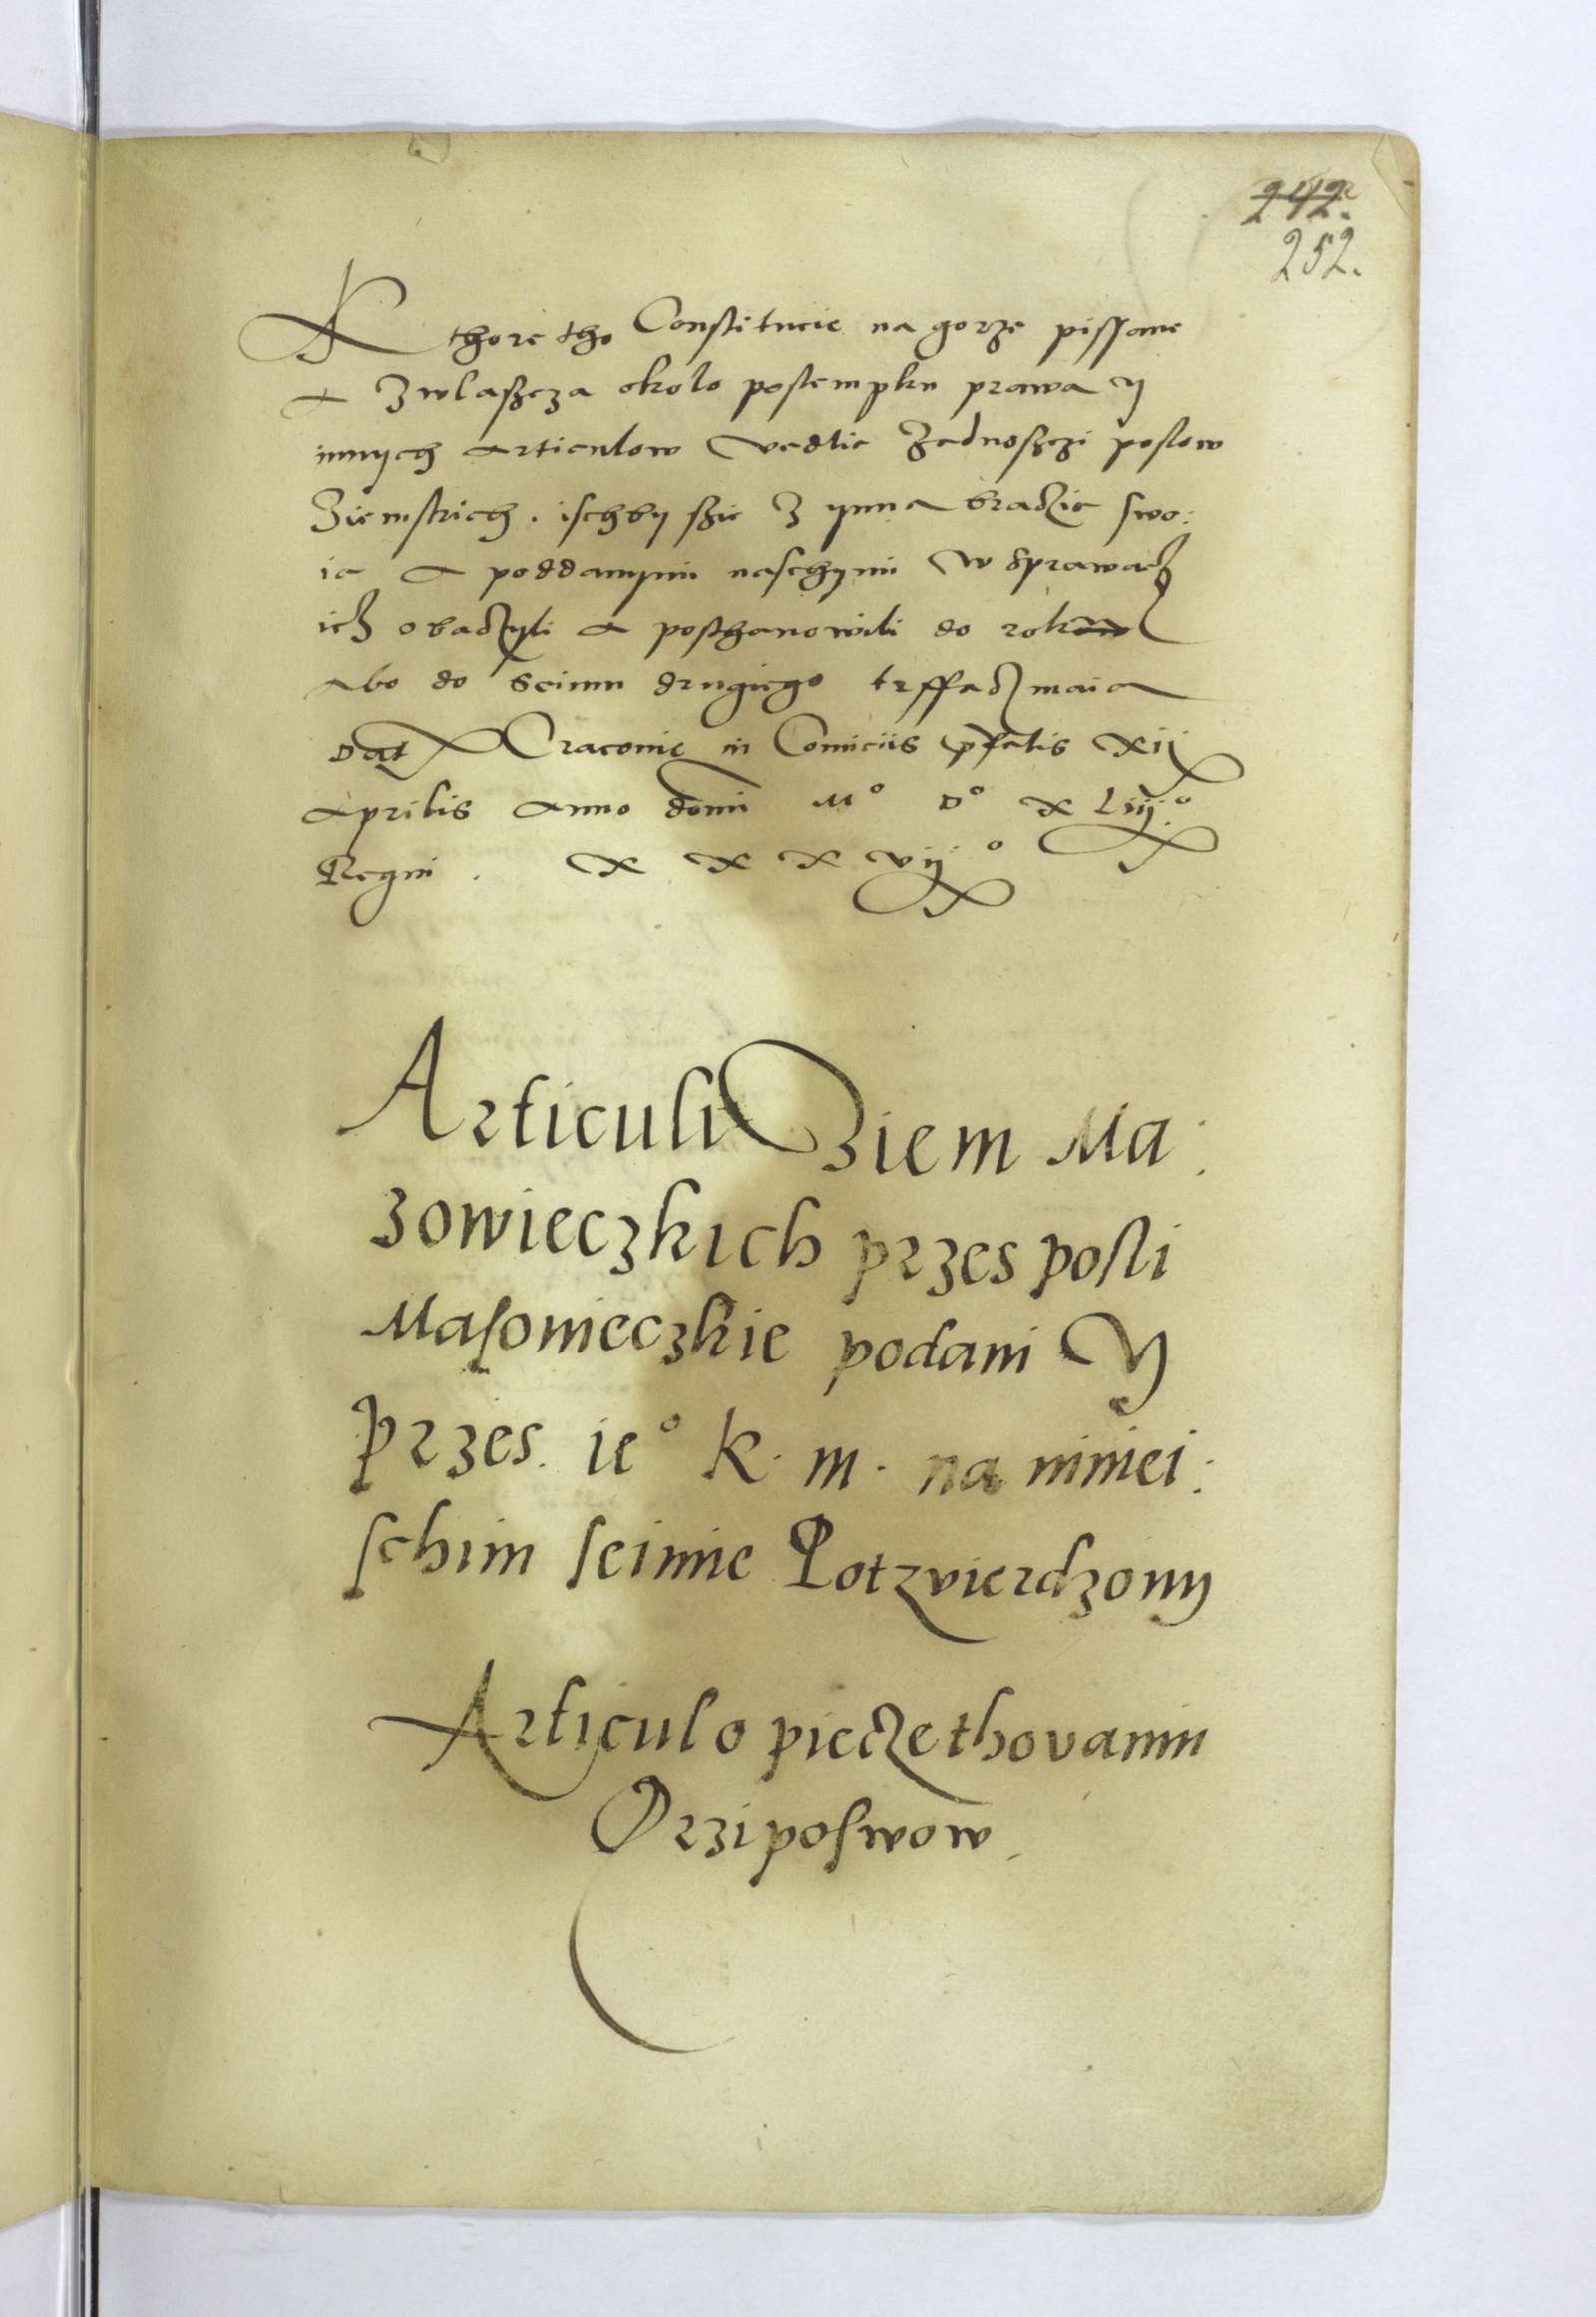 242.
252.
Kthore tho Constitucie na gorze pissane
A Zwlaszcza okolo postempku prawa y
innych Articulow Vedlie Zadnoszczi poslow
Ziemskich. ischby szie Z ynna braczie swo:
ia A poddanymi naschymi W sprawach
ich obaczyli A posthanowili do roku
Abo do Seimu drugiego trffacz maia
Dat Cracovie in Comiciis pfatis Xii
Aprilis Anno domi M° D° X Liij°
Regni . X X X vij°
Articuli Ziem Ma:
zowieczkich przes posli
Masowieczkie podani Y
przes. ie° K. m. na niniei:
schim seimie Potzvierdzony
Articul o pieczethovaniu
Prziposwow.